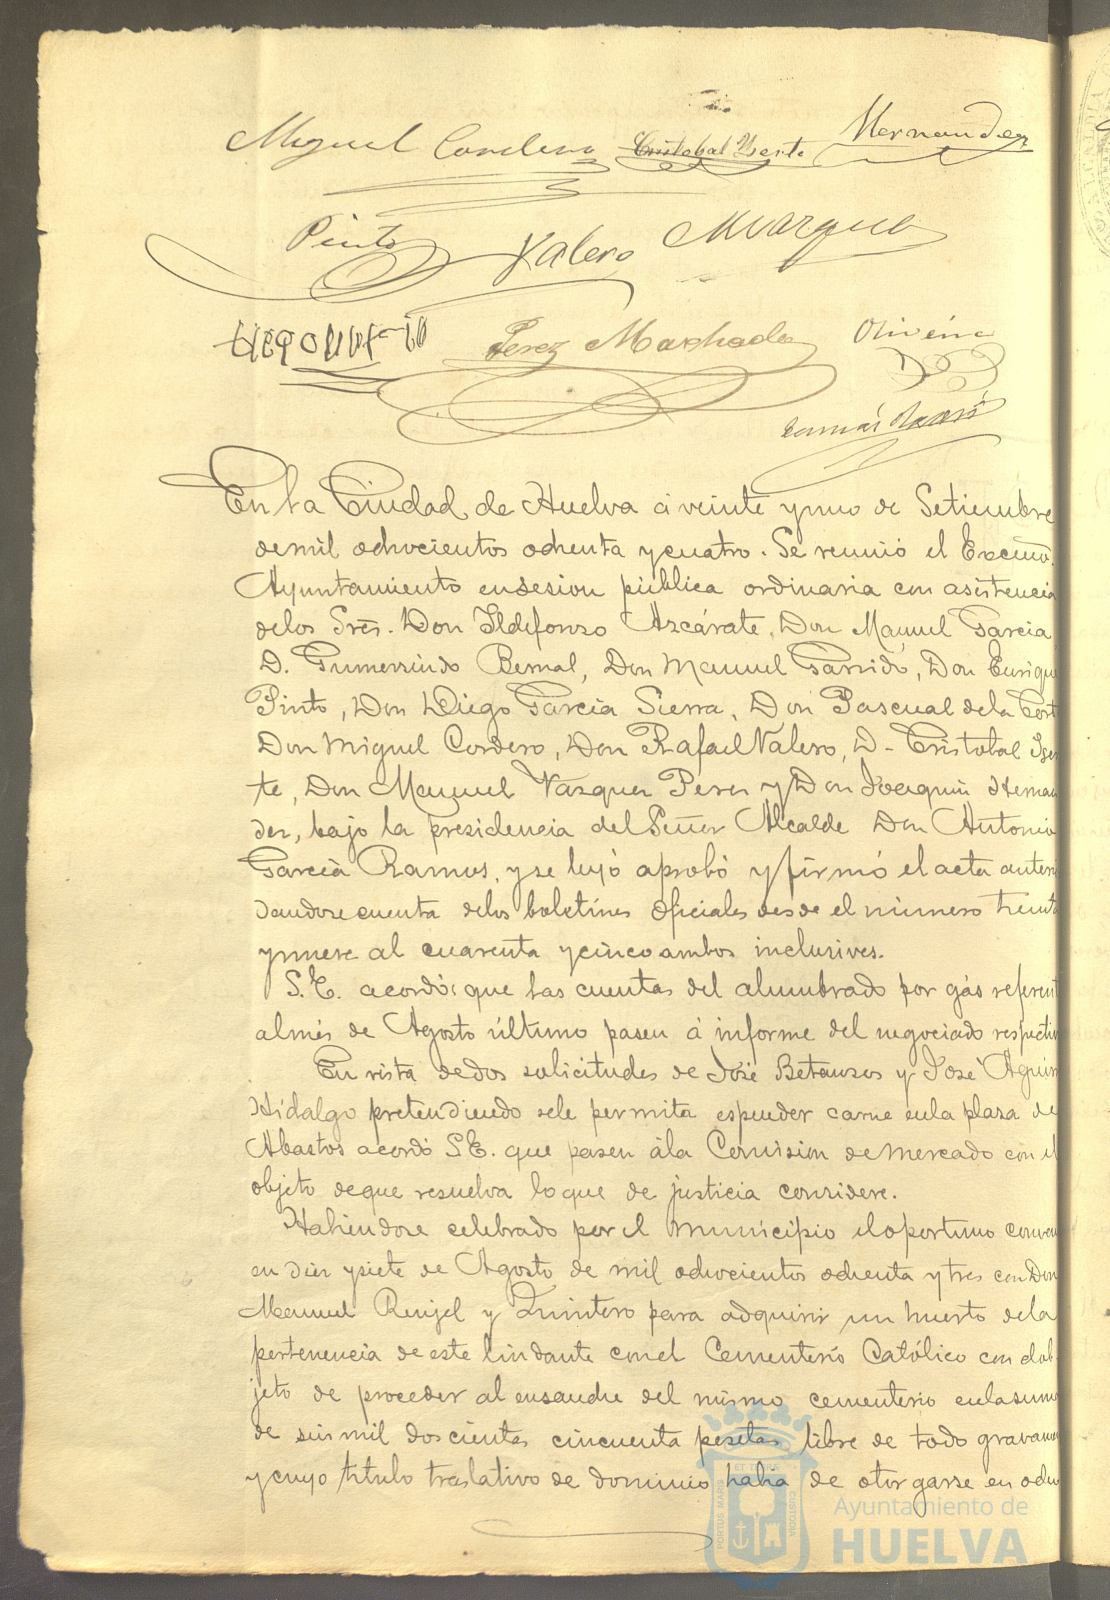 Miguel Cordero Cristobal Yserte Hernandez
Pinto Valero M Vazquez
Perez Machado Oliveira
Tomás
En la Ciudad de Huelva á veinte y uno de Setiembre
de mil ochocientos ochenta y cuatro. Se reunió el Excmo.
Ayuntamiento en sesion pública ordinaria con asistencia
de los Sres. Don Ildefonso Azcárate, Don Manuel Garcia
D. Gumersindo Bernal, Don Manuel Garrido, Don Enrique
Pinto, Don Diego Garcia Sierra, Don Pascual de la Cort
Don Miguel Cordero, Don Rafael Valero, D. Cristobal Yser
te, Don Manuel Vazquez Perez y Don Joaquin Hernan
dez, bajo la presidencia del Señor Alcalde Don Antonio
Garcia Ramos, y se leyó aprobó y firmó el acta anteri
dandose cuenta de los boletines oficiales desde el número treinta
y nueve al cuarenta y cinco ambos inclusives.
S.E. acordó: que las cuentas del alumbrado por gás referent
al més de Agosto último pasen á informe del negociado respectiv
En vista de dos solicitudes de José Betanzos y José Aguir
Hidalgo pretendiendo se le permita espender carne en la plaza de
Abastos acordó S.E. que pasen á la Comision de Mercado con el
objeto de que resuelva lo que de justicia considere.
Habiendose celebrado por el Municipio el oportuno conven
en diez y siete de Agosto de mil ochocientos ochenta y tres con Don
Manuel Rengel y Quintero para adquirir un huerto de la
pertenencia de este lindante con el Cementerio Católico con el ob
jeto de proceder al ensanche del mismo cementerio en la suma
de seis mil doscientas cincuenta pesetas libre de todo gravamen
y cuyo titulo traslativo de dominio habia de otorgarse en ocho
PORTUS MARIS ET TERRE CUSTODIA
Ayuntamiento de
HUELVA